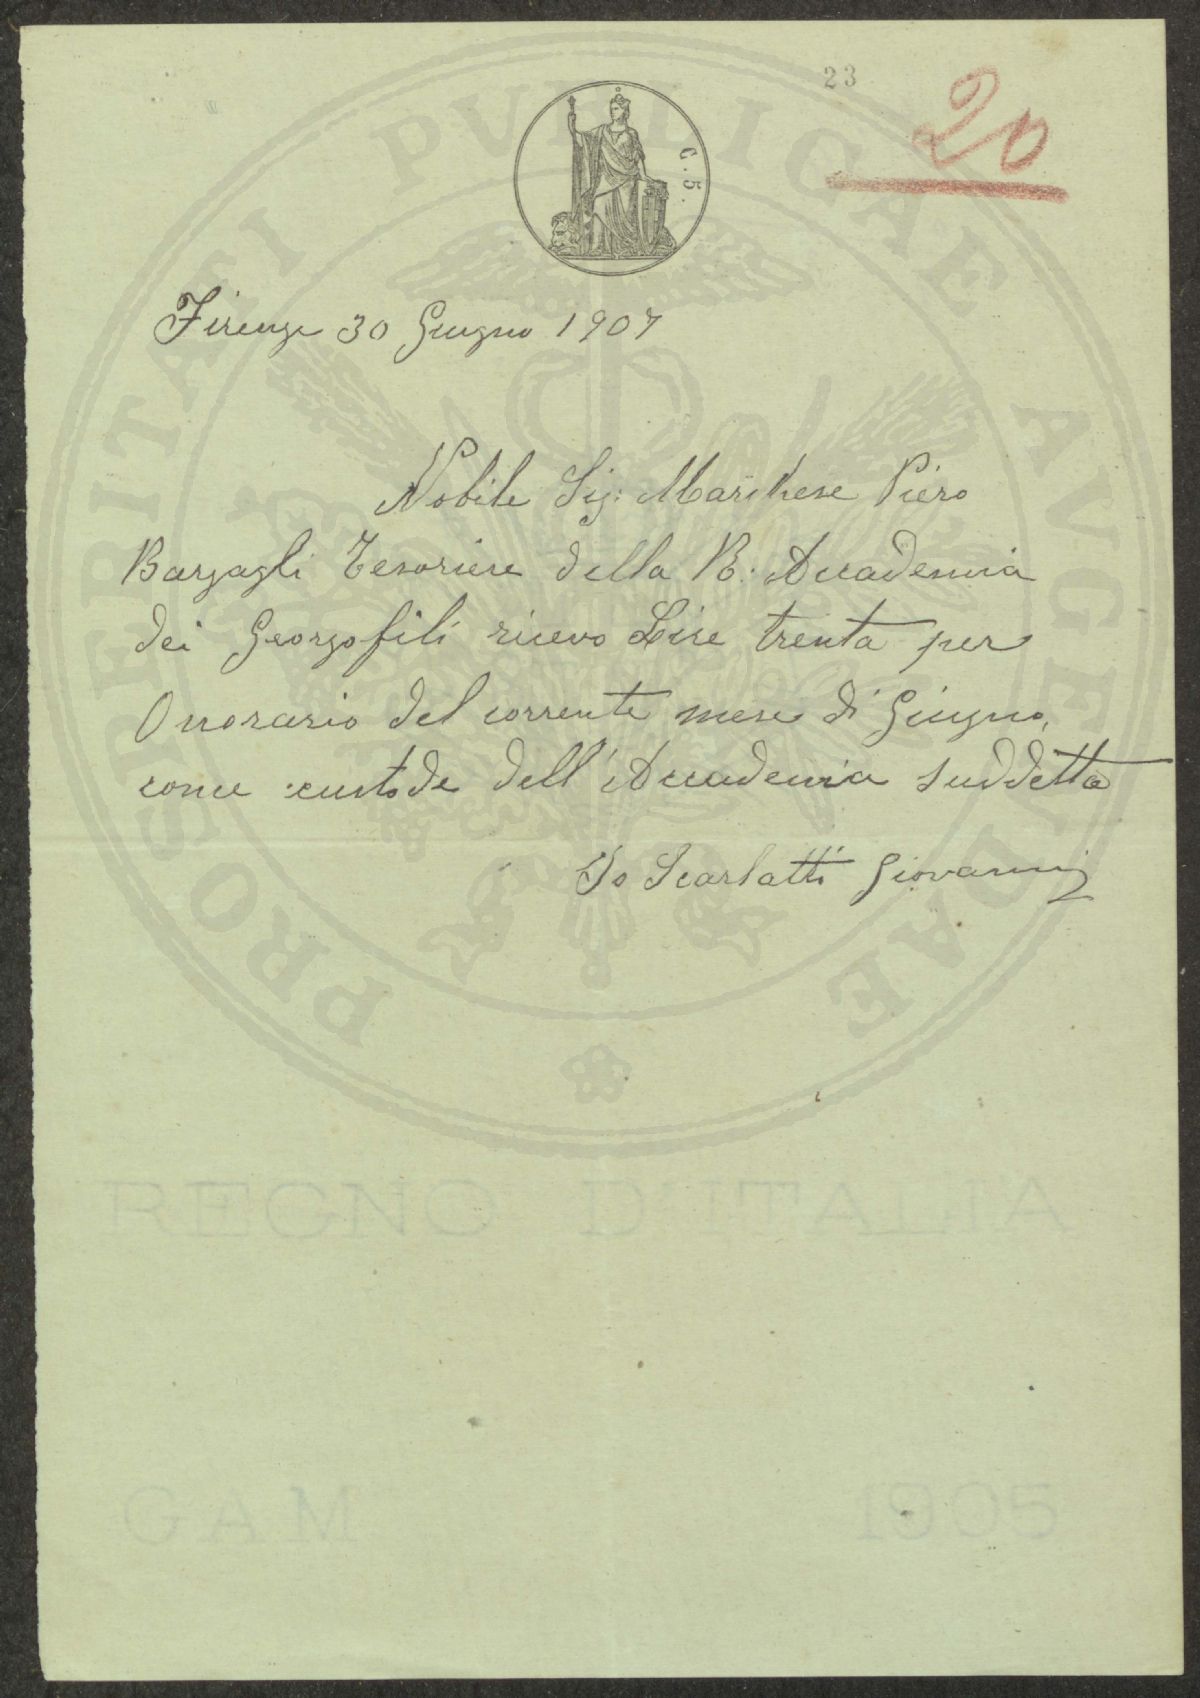 23
20
C. 5.
Firenze 30 Giugno 1907
Nobile Sig: Marchese Piero
Bargagli Tesoriere della R. Accademia
dei Georgofili ricevo Lire trenta per
Onorario del corrente mese di Giugno,
come custode dell'Accademia suddetta
Io Scarlatti Giovanni
PROSPERITATI PVBLICAE AVGENDAE
REGNO D'ITALIA
GAM 1905